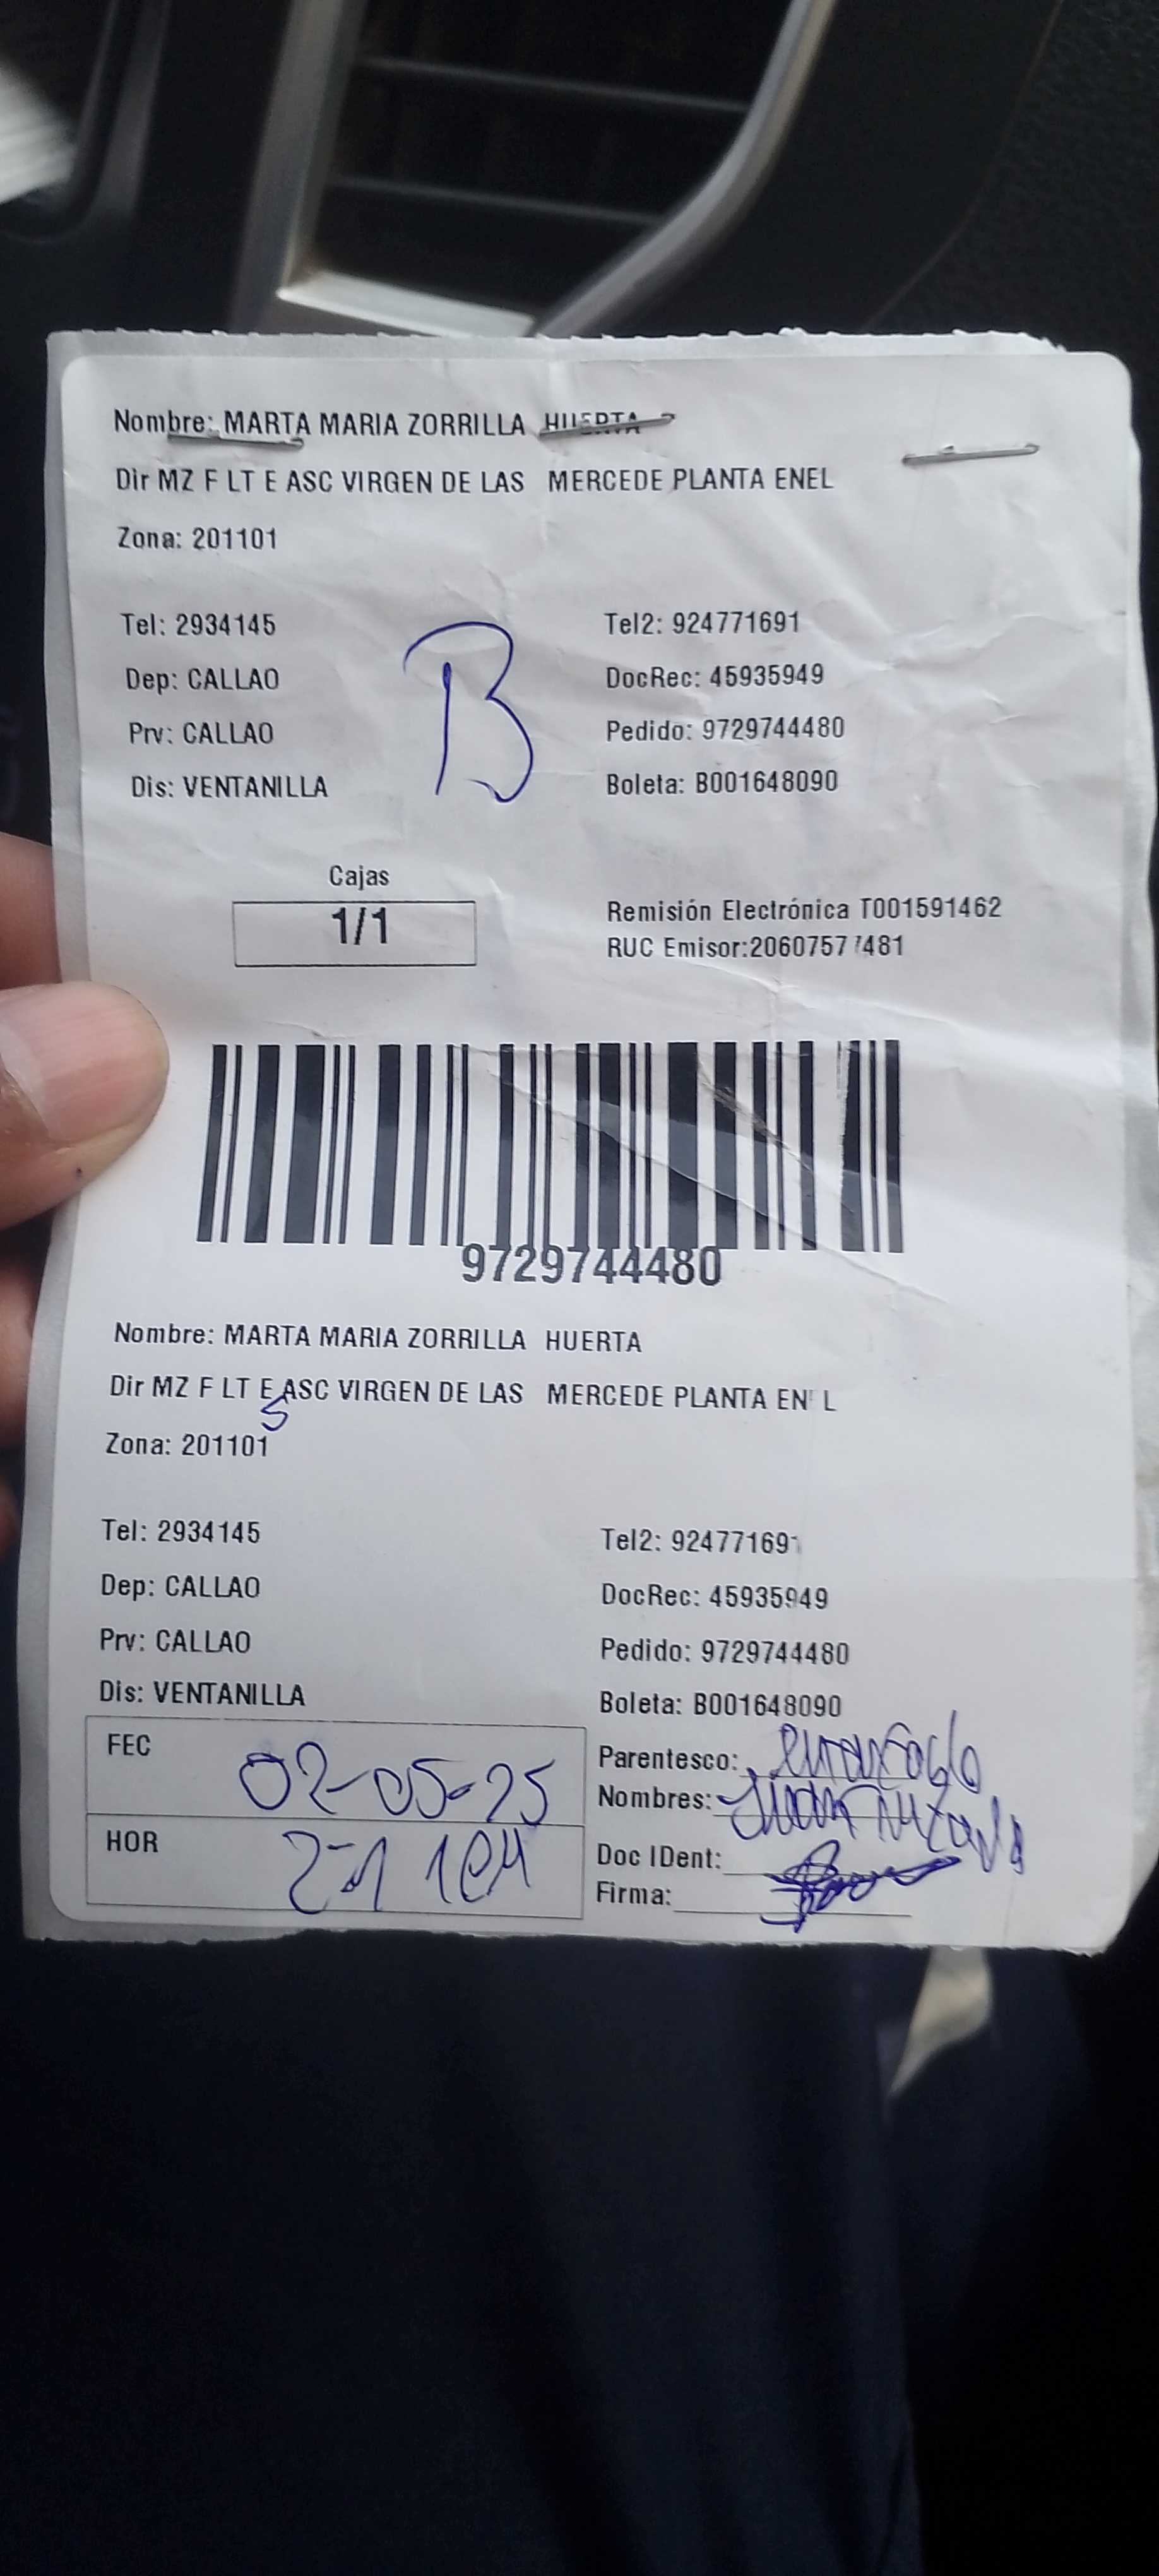 Nombre: MARTA MARIA ZORRILLA HUERTA
Dir MZ F LT E ASC VIRGEN DE LAS MERCEDE PLANTA ENEL
Zona: 201101
Tel: 2934145 Tel2: 924771691
Dep: CALLAO DocRec: 45935949
Prv: CALLAO Pedido: 9729744480
Dis: VENTANILLA Boleta: B001648090
B
Cajas
1/1
Remisión Electrónica T001591462
RUC Emisor:20607577481
9729744480
Nombre: MARTA MARIA ZORRILLA HUERTA
Dir MZ F LT E ASC VIRGEN DE LAS MERCEDE PLANTA EN L
5
Zona: 201101
Tel: 2934145 Tel2: 924771691
Dep: CALLAO DocRec: 45935949
Prv: CALLAO Pedido: 9729744480
Dis: VENTANILLA Boleta: B001648090
FEC 02-05-25
Parentesco:
Nombres:
HOR
Doc IDent:
Firma: